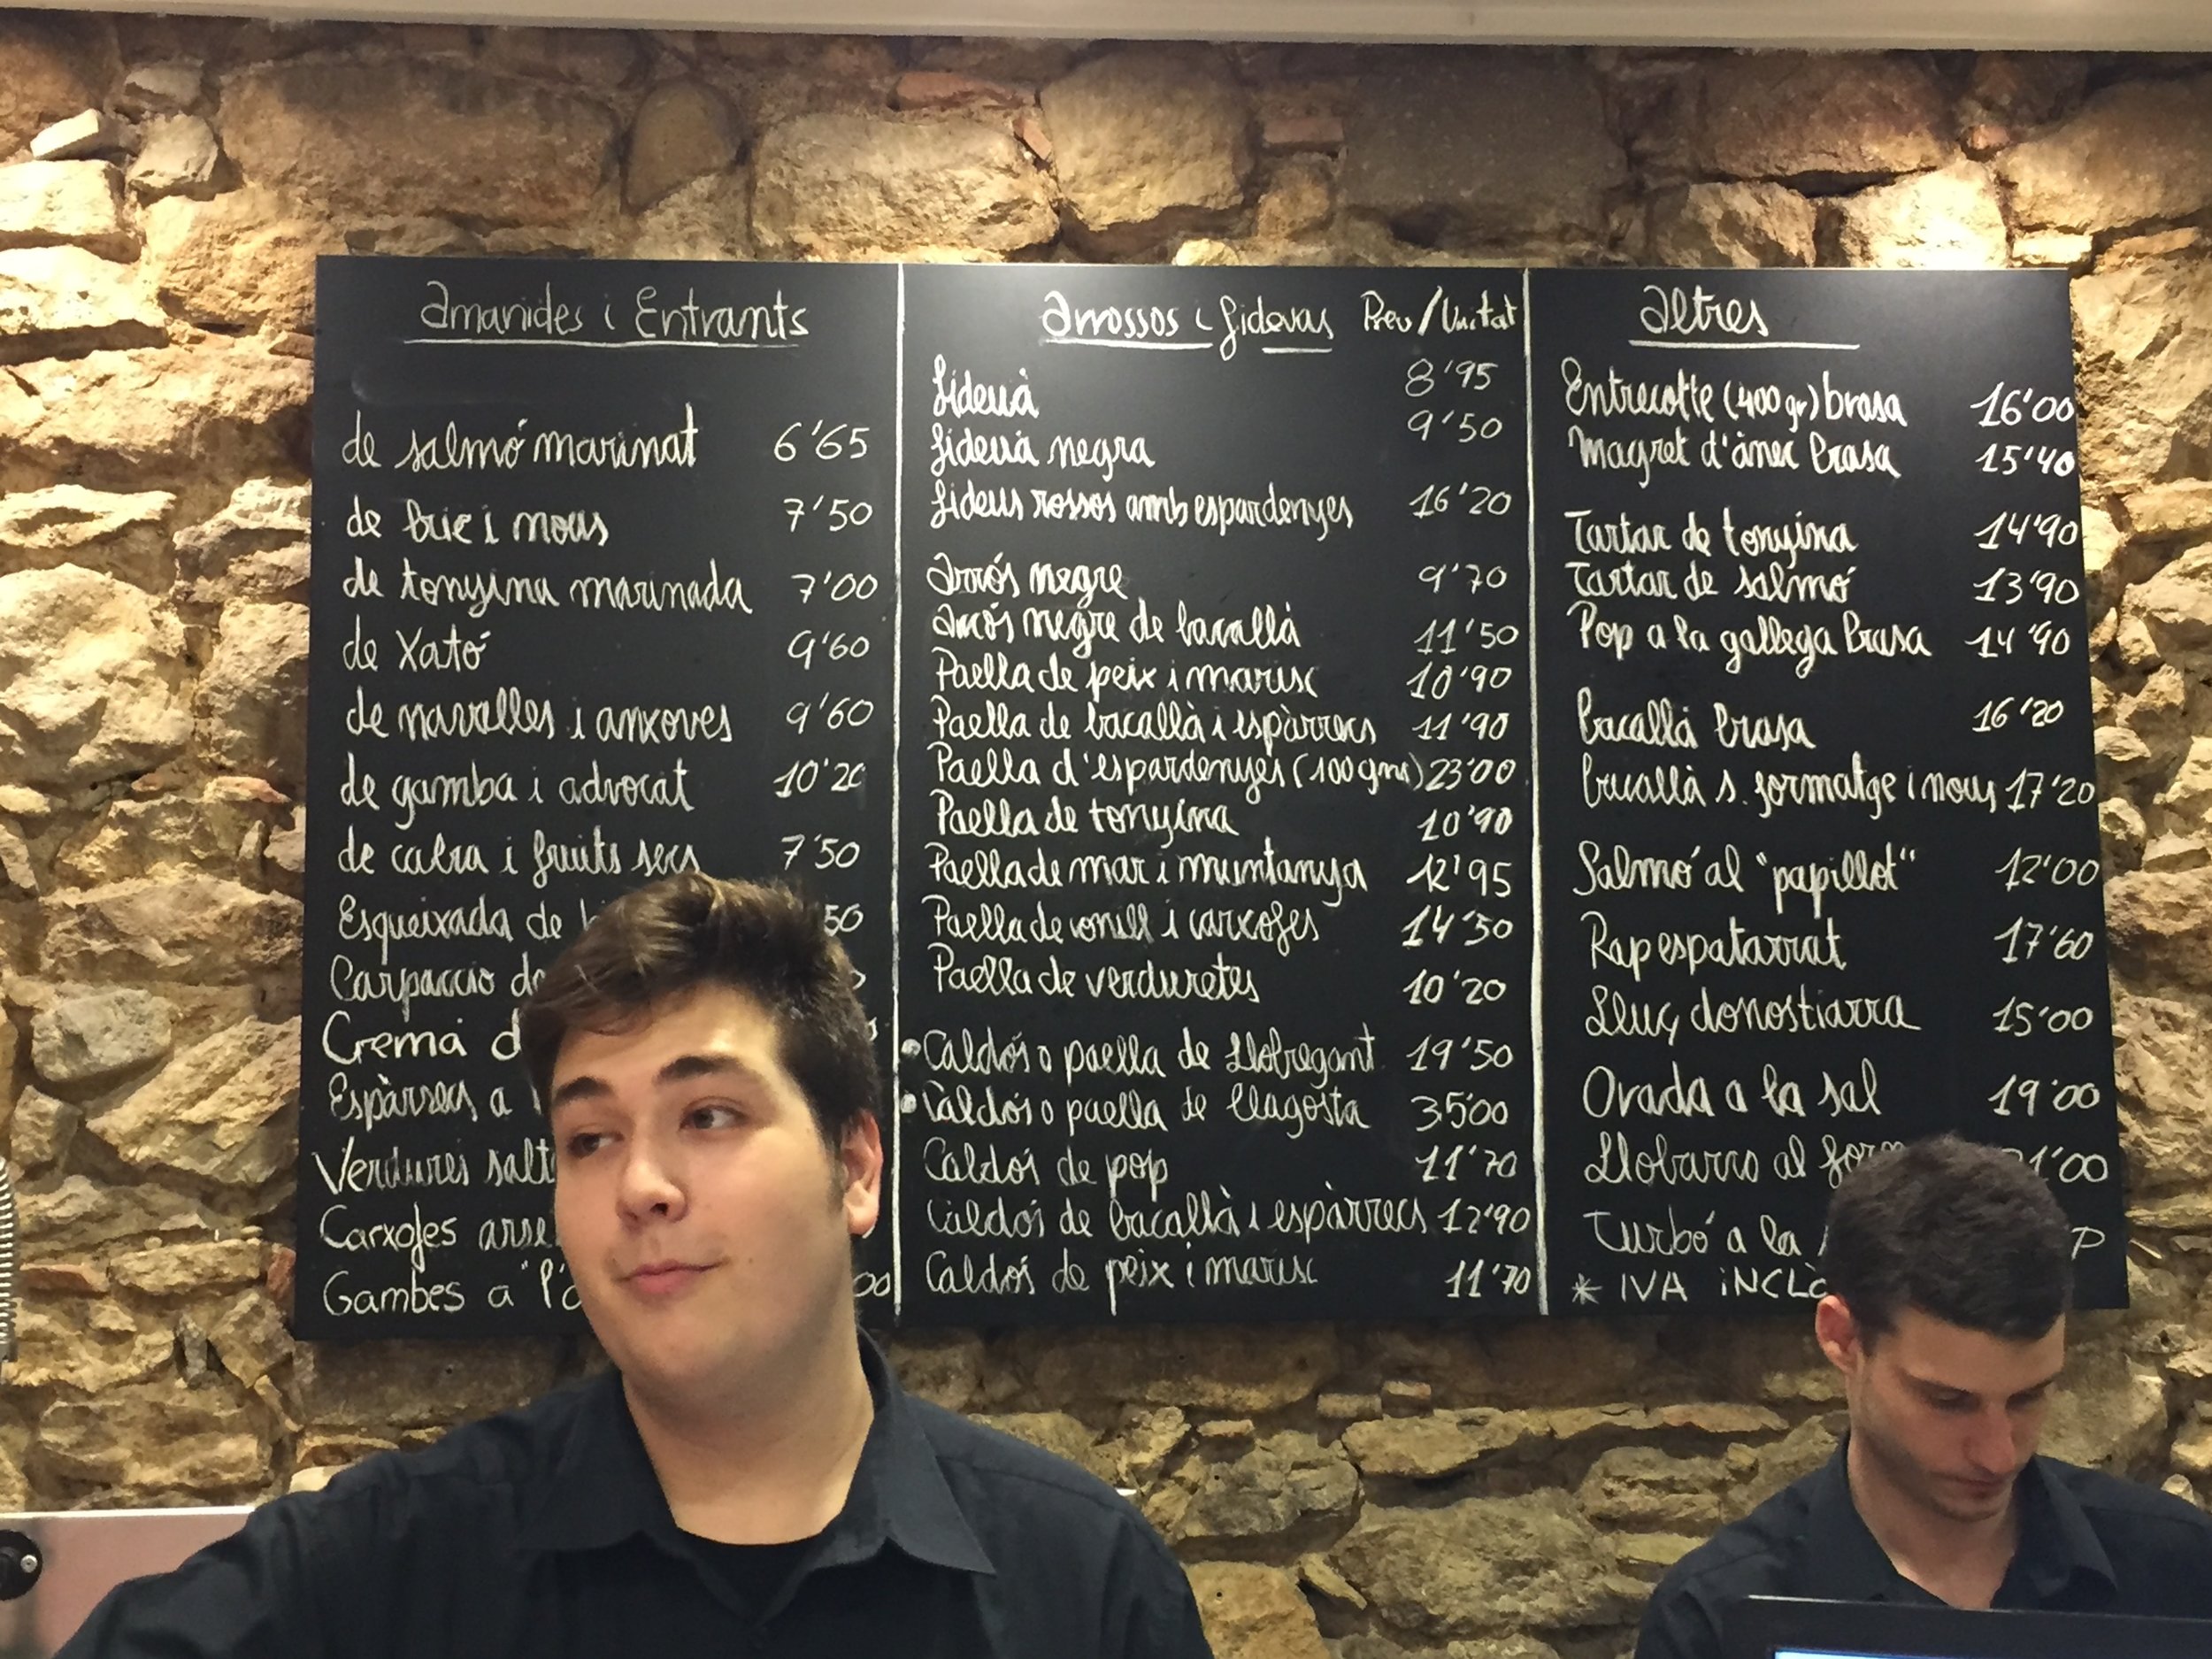 Amanides i Entrants
de salmó marinat 6'65
de brie i nous 7'50
de tonyina marinada 7'00
de Xató 9'60
de navalles i anxoves 9'60
de gamba i advocat 10'20
de cabra i fruits secs 7'50
Esqueixada de 50
Carpaccio
Crema
Espàrrecs a
Verdures
Carxofes
Gambes a 00
Arrossos i fideuas Preu/Unitat
fideuà 8'95
fideuà negra 9'50
fideus rossos amb espardenyes 16'20
Arrós negre 9'70
Arrós negre de bacallà 11'50
Paella de peix i marisc 10'90
Paella de bacallà i espàrrecs 11'90
Paella d'espardenyes (100 gms) 23'00
Paella de tonyina 10'90
Paella de mar i muntanya 12'95
Paella de conill i carxofes 14'50
Paella de verduretes 10'20
• Caldós o paella de Llobregant 19'50
• Caldós o paella de llagosta 35'00
Caldós de pop 11'70
Caldós de bacallà i espàrrecs 12'90
Caldós de peix i marisc 11'70
Altres
Entrecotte (400 gr) brasa 16'00
Magret d'ànec brasa 15'40
Tartar de tonyina 14'90
Tartar de salmó 13'90
Pop a la gallega brasa 14'90
Bacallà brasa 16'20
bacallà s. formatge i nous 17'20
Salmó al "papillot" 12'00
Rap espatarrat 17'60
Lluç donostiarra 15'00
Orada a la sal 19'00
Llobarro al 1'00
Turbó a la P
* IVA